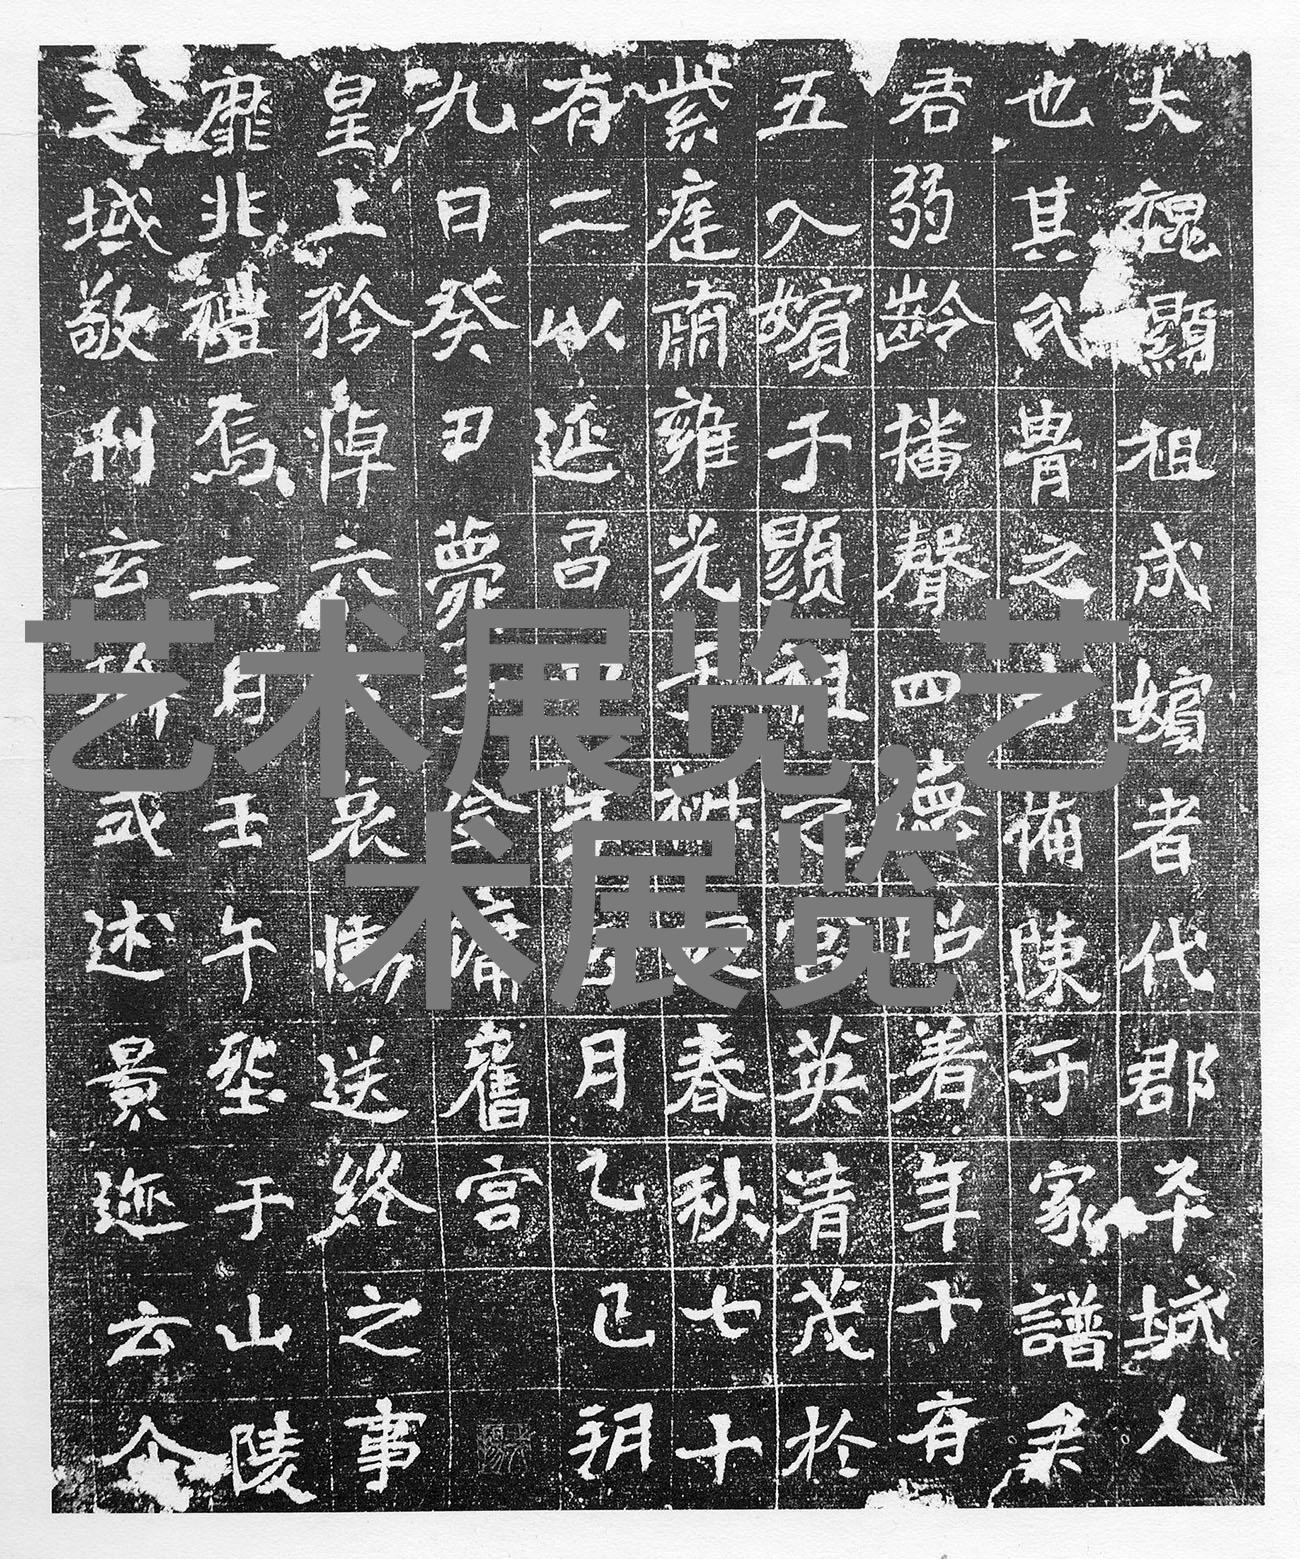 大魏顯祖成嬪者代郡平城人
也其氏胄之由備陳于家譜矣
君弱齡播聲四德昭著年十有
五入嬪于顯祖宮英清茂於
紫庭肅雍光于椒春秋七十
有二以延昌四年正月乙巳朔
九日癸丑薨于金墉舊宮
皇上矜悼六宮哀慟送終之事
靡非禮焉二月壬午塟于山陵
之域敬刊玄瑜式述景迹云尒
艺术展览,艺
术展览